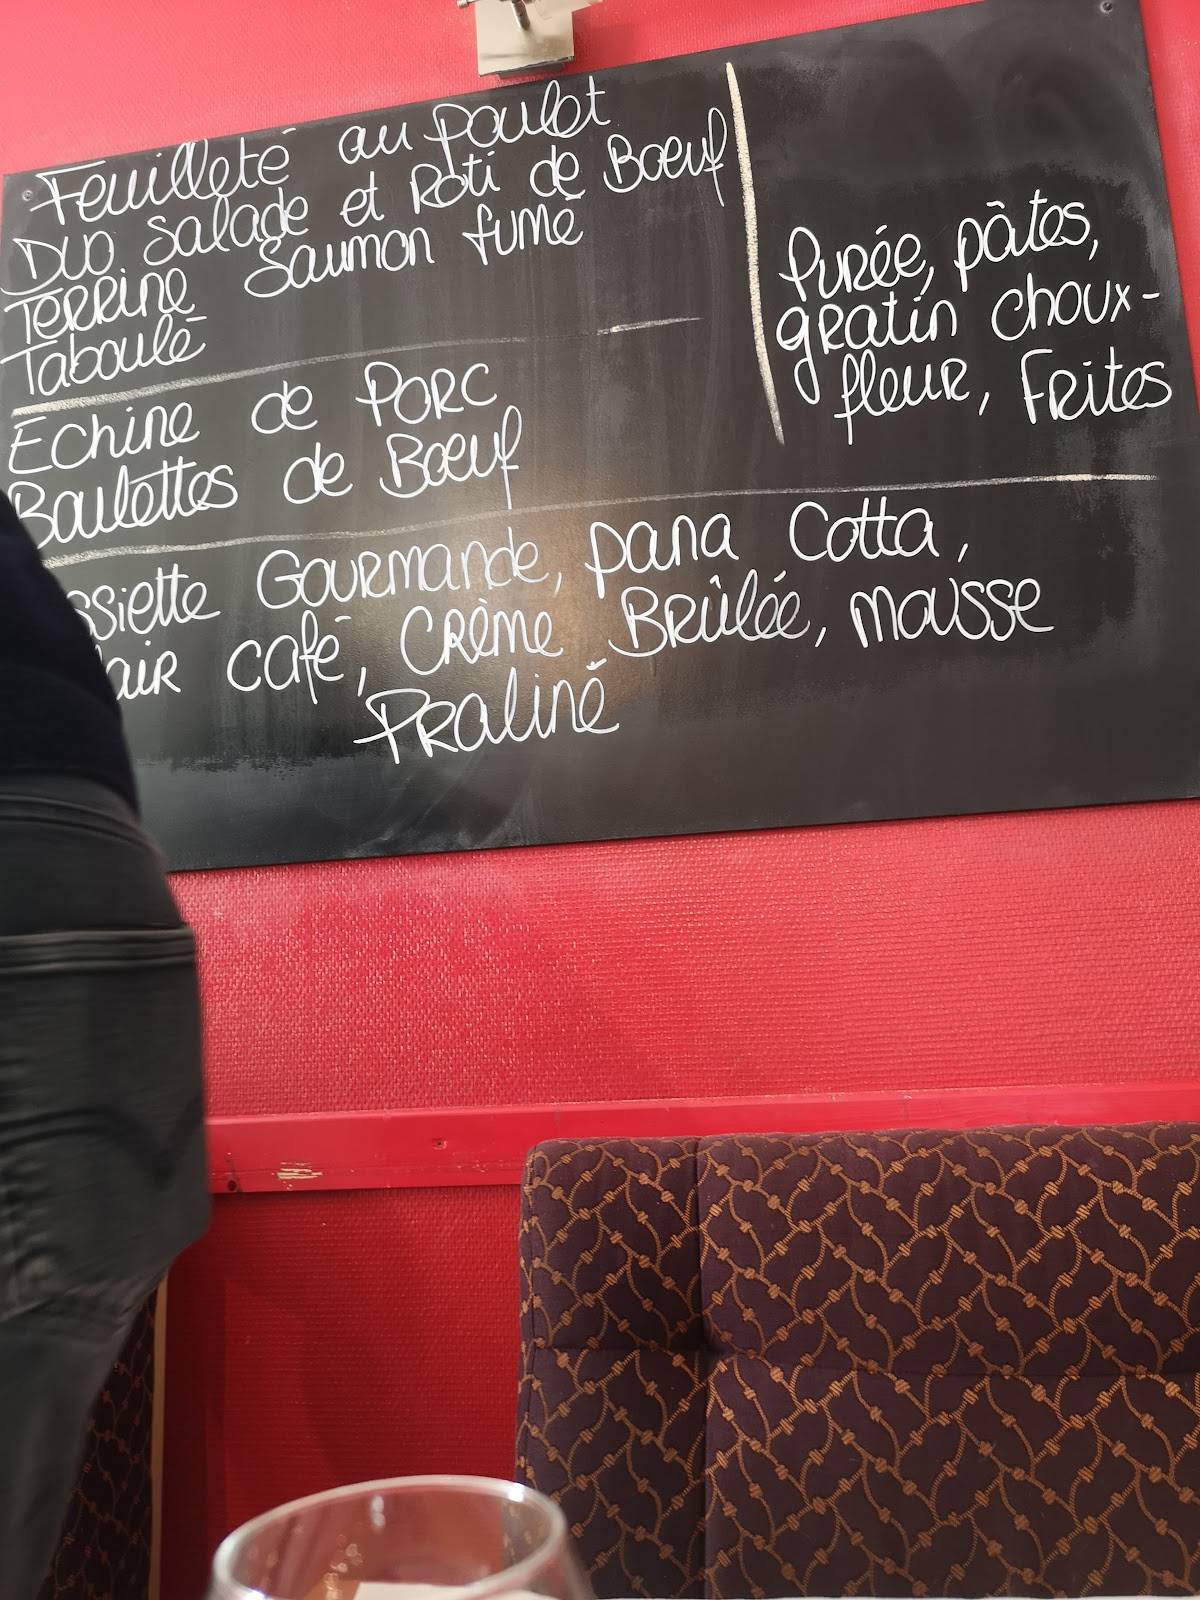 Feuilleté au poulet
Duo Salade et Roti de Boeuf
Terrine Saumon fumé
Taboulé
Echine de Porc
Boulettes de Boeuf
Purée, pâtes,
gratin choux-
fleur, Frites
ssiette Gourmande, pana Cotta,
air café, Crème Brûlée, mousse
Praliné